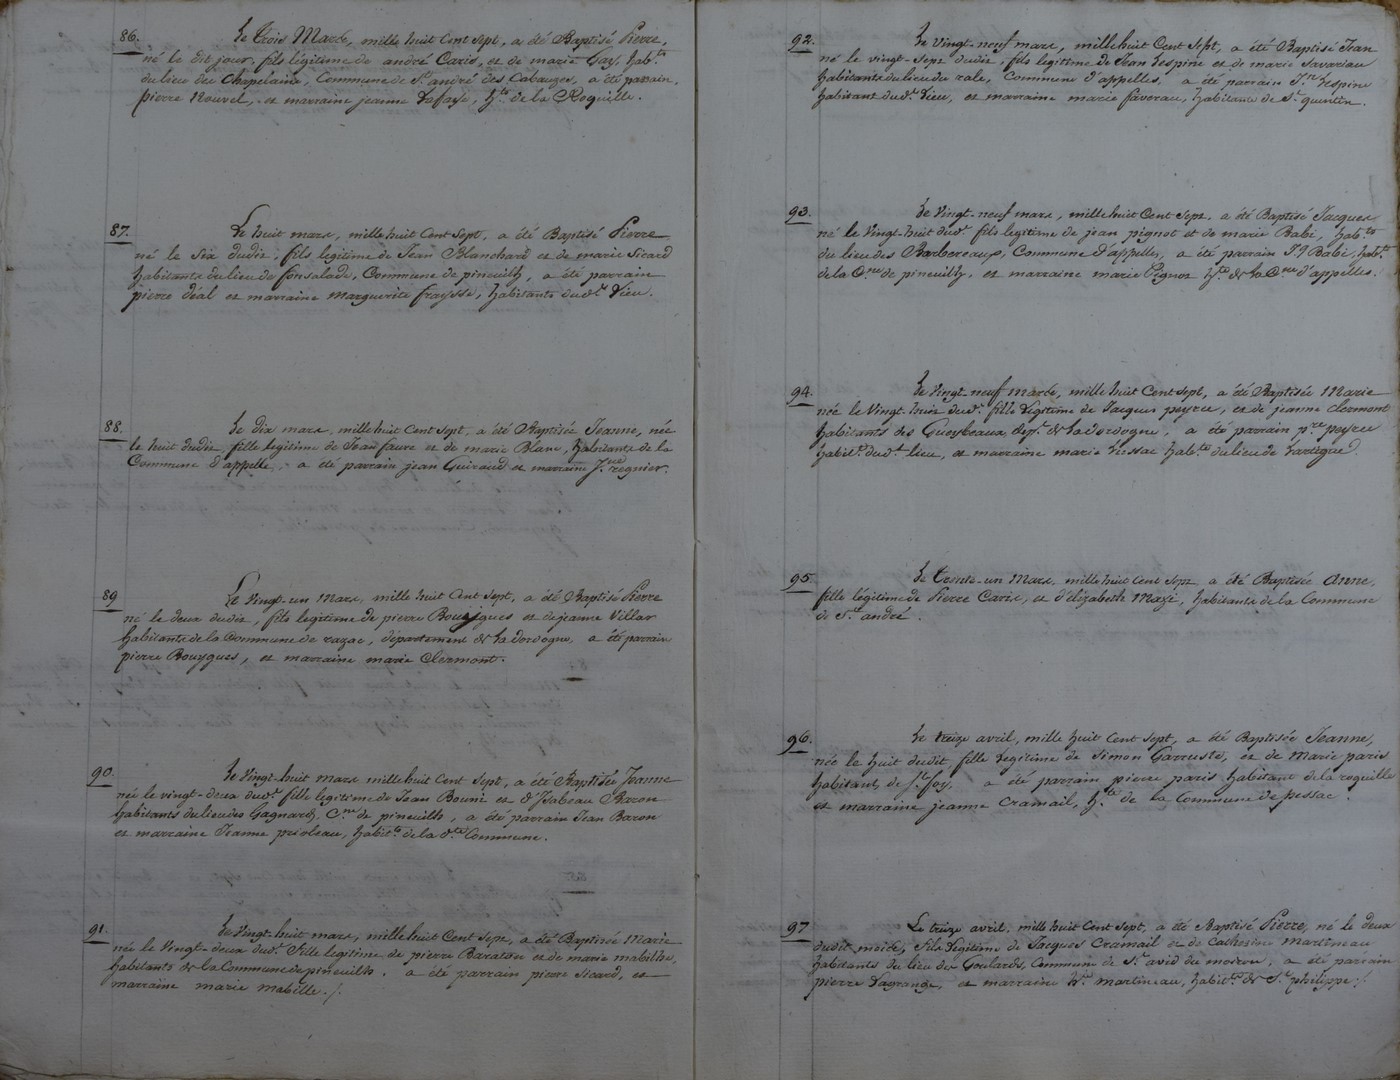 86.
Le Trois Mars, mille huit Cent Sept, a été Baptisé Pierre,
né le dit jour, fils légitime de andré Caris, et de marie Gay, hab.ts
du lieu des Chapelains, Commune de S.t andré des Cabauges, a été parrain,
pierre nouvel, et marraine jeanne Lafaye, h.te de la Roquille.
87.
Le huit mars, mille huit Cent Sept, a été Baptisé Pierre
né le Six dudit, fils légitime de Jean Blanchard et de marie Sicard
habitants du lieu de fonsalade, Commune de pineuilh, a été parrain
pierre déal et marraine marguerite fraysse, habitants dud.t Lieu.
88.
Le dix mars, mille huit Cent Sept, a été Baptisée Jeanne, née
le huit dudit, fille legitime de Jean faure et de marie Blanc, habitants de la
Commune d'appelle, a été parrain jean Guiraud et marraine J.ne regnier.
89
Le Vingt-un Mars, mille huit Cent Sept, a été Baptisé Pierre
né le deux dudit, fils legitime de pierre Bouyques et de jeanne Villar
habitants de la Commune de razac, département de La dordogne, a été parrain
pierre Bouyques, et marraine marie Clermont.
90.
Le Vingt-huit mars mille huit Cent Sept, a été Baptisée Jeanne
née le vingt-deux dud.t fille legitime de Jean Bouni et d'Isabeau Baron
habitants du lieu des Gagnards, C.ne de pineuilh, a été parrain Jean Baron
et marraine Jeanne prioleau, habit.te de la d.te Commune.
91.
Le Vingt-huit mars, mille huit Cent Sept, a été Baptisée Marie
née le Vingt-deux dud.t fille legitime de pierre Baraton et de marie mabille,
habitants de la Commune de pineuilh. a été parrain pierre Sicard, et
marraine marie mabille./.
92.
Le Vingt-neuf mars, mille huit Cent Sept, a été Baptisé Jean
né le vingt-Sept dudit, fils legitime de Jean Lespine et de marie Savariau
habitants du lieu du rale, Commune d'appelles. a été parrain J.n Lespine
habitant du d.t Lieu, et marraine marie faverau, habitante de S.t quentin.
93.
Le Vingt-neuf mars, mille huit Cent Sept, a été Baptisé Jacques
né le Vingt-huit dud.t fils legitime de jean pignot et de marie Babi, hab.ts
du lieu des Barbereaux, Commune d'appelles, a été parrain J.n Babi, hab.t
de la C.ne de pineuilh, et marraine marie Pignot h.te de la C.ne d'appelles.
94.
Le Vingt-neuf Mars, mille huit Cent Sept, a été Baptisée Marie
née le Vingt-huit dud.t fille Legitime de Jacques peyre, et de jeanne Clermont
habitants des dep.t de La dordogne, a été parrain p.re peyre
habit.t dud.t lieu, et marraine marie hab.te du lieu de Lartigue.
95.
Le Trente-un Mars, mille huit Cent Sept, a été Baptisée Anne,
fille légitime de Pierre Caris, et d'élizabeth Mazé, habitants de la Commune
de S.t andré.
96.
Le treize avril, mille huit Cent Sept, a été Baptisée Jeanne,
née le huit dudit, fille Legitime de Simon Garruste, et de Marie paris
habitants de S.te foy, a été parrain pierre paris habitant de la roquille
et marraine jeanne Cramail, h.te de la Commune de pessac.
97
Le treize avril, mille huit Cent Sept, a été Baptisé Pierre, né le deux
dudit mois, fils Légitime de Jacques Cramail et de Catherine Martineau
habitants du lieu des Goulards, Commune de S.t avid du moiron, a été parrain
pierre Lagrange, et marraine martineau, habit.te de S.t philippe./.